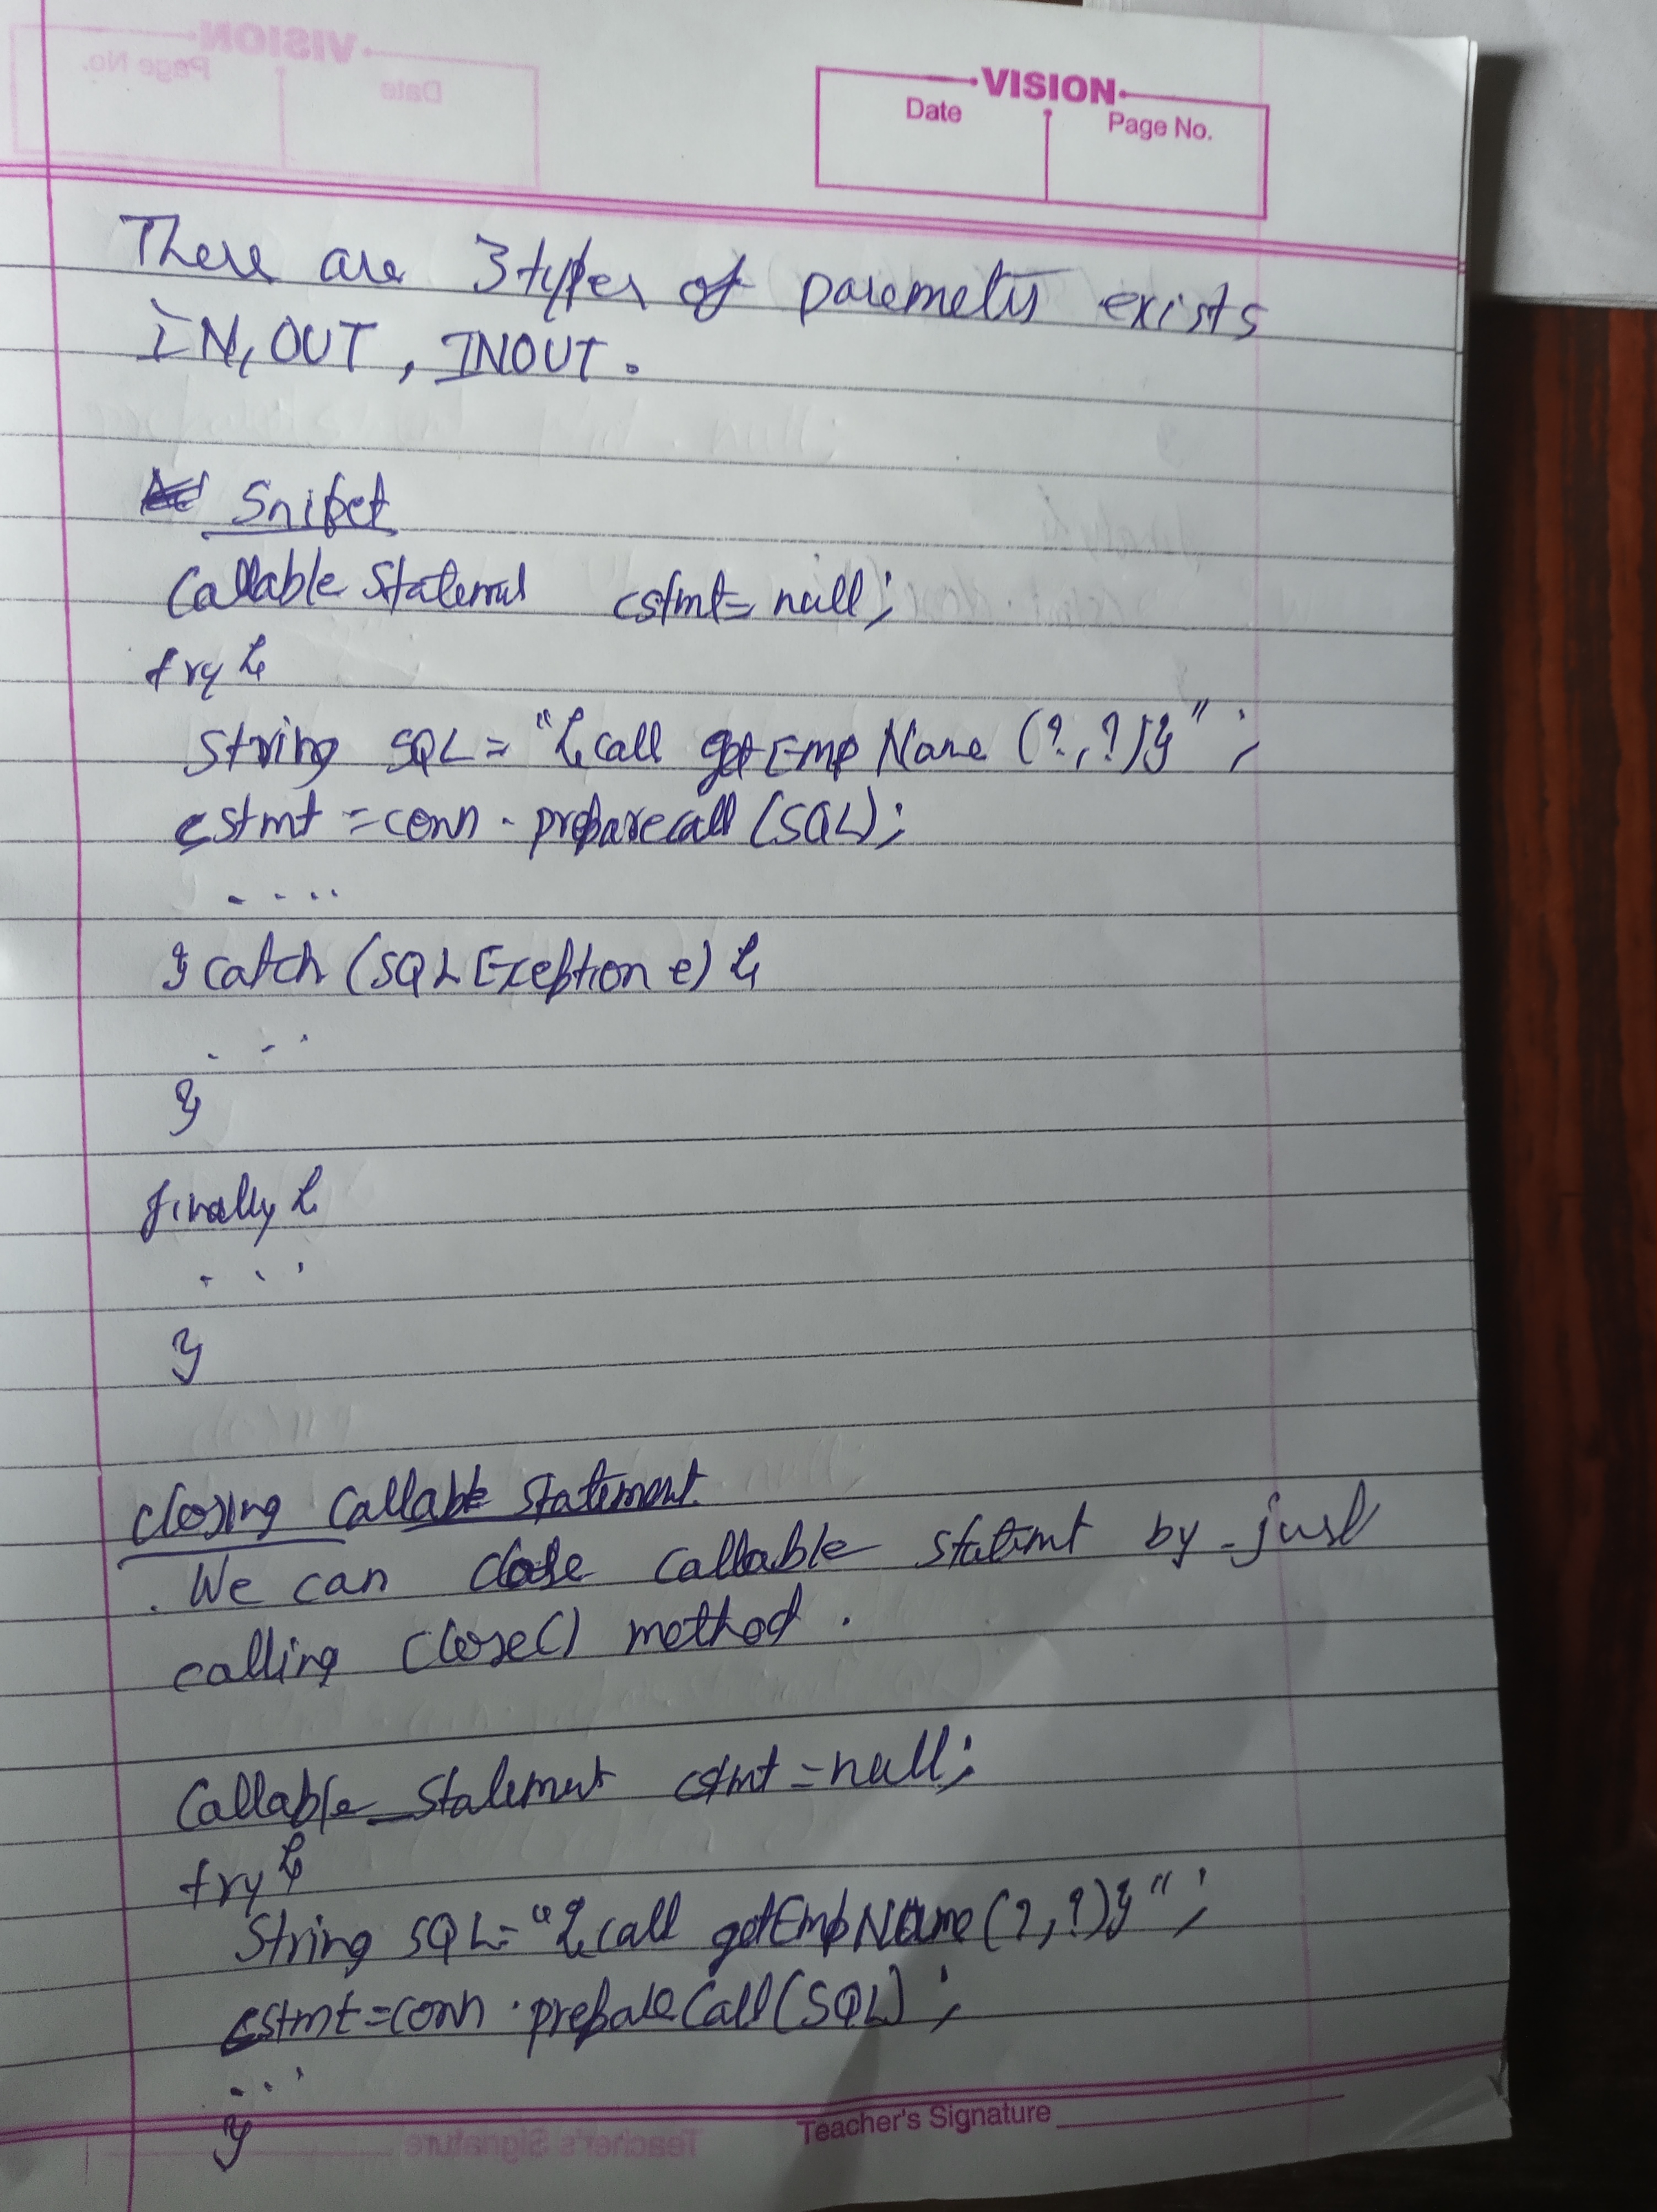 VISION
Date Page No.
There are 3 types of paremeters exists
IN, OUT, INOUT.
Snipet
Callable Statement cstmt = null;
try {
String SQL = "{call getEmpName (?,?)}";
cstmt = conn.preparecall(SQL);
....
} catch (SQLException e) {
...
}
finally {
...
}
closing Callable statement
. We can close callable statemt by just
calling close() method.
Callable_statement cstmt = null;
try {
String SQL = "{call getEmpName(?,?)}";
cstmt = conn.prepareCall(SQL);
...
}
Teacher's Signature